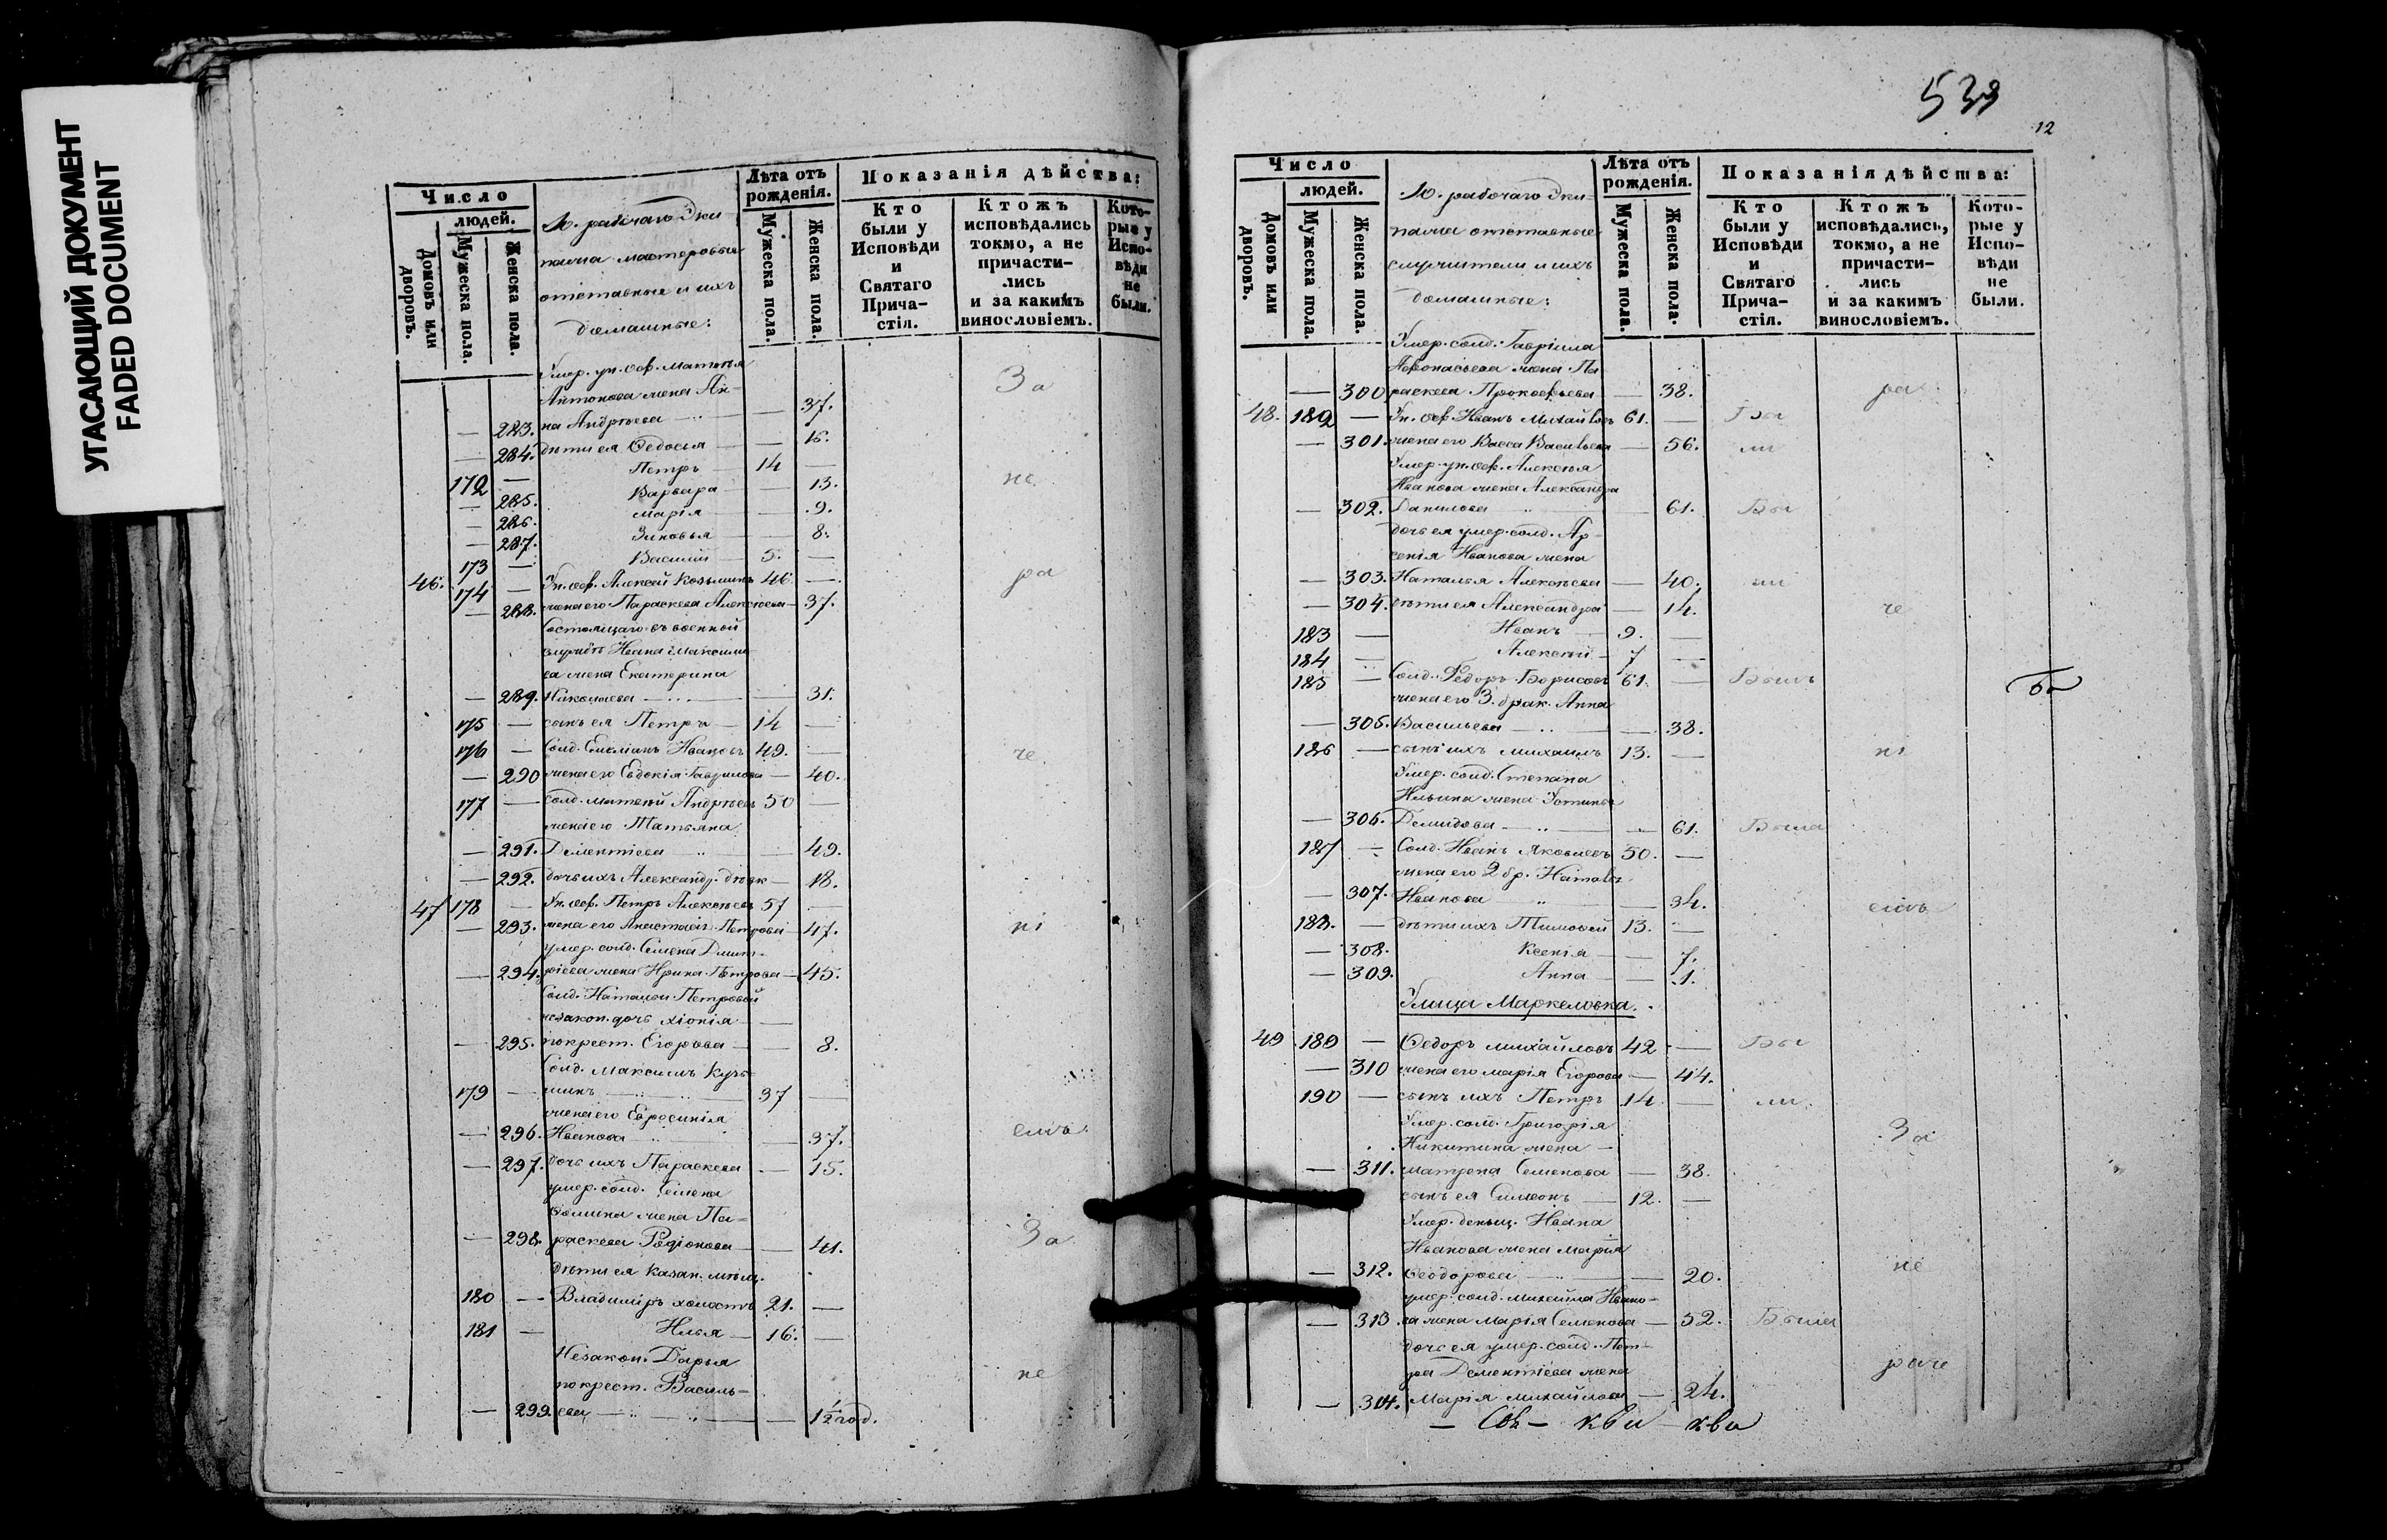 УГАСАЮЩИЙ ДОКУМЕНТ
FADED DOCUMENT
Число
людей.
Домовъ или дворовъ.
Мужеска пола.
Женска пола.
рабочаго эки-
пажа мастеровые
отставные и ихъ
домашные:
Лѣта отъ рожденія.
Мужеска пола.
Женска пола.
Показанія дѣйства:
Кто были у Исповѣди и Святаго Прича- стія.
Ктожъ исповѣдались токмо, а не причасти- лись и за какимъ винословіемъ.
Кото- рые у Испо- вѣди не были.
Умер. ун. оф. Матвѣя
Антонова жена Ан- За
— 283. на Андрѣева — 37.
— 284. дѣти ея Ѳедосья — 16.
172 — Петръ 14 —
— 285. Варвара — 13. не
— 286. Марія — 9.
— 287. Зиновья — 8.
173 — Василій 5. —
46. 174 — Ун. оф. Алексей Козьминъ 46 — ра
— 288. жена его Параскева Алексѣева — 37.
Состоящаго въ военной
службѣ Ивана Максимо-
ва жена Екатерина
— 289. Николаева — 31.
175 — сынъ ея Петръ 14 —
176 — Солд. Емеліанъ Ивановъ 49. — че
— 290 жена его Евдокія Гаврилова — 40.
177 — солд. Матвѣй Андрѣевъ 50 —
жена его Татьяна
— 291. Дементіева — 49.
— 292. дочь ихъ Александр. дѣвк — 18.
47 178 — Ун. оф. Петръ Алексѣевъ 57 —
— 293. жена его Анастасія Петрова — 47. ні
умер. солд. Семена Дмит-
— 294. ріева жена Ирина Петрова — 45.
Солд. Натальи Петровой
незакон. дочь Хіонія —
— 295. покрест. Егорова — 8.
Солд. Максимъ Кузь-
179 — минъ 37 —
жена его Евросинія
— 296. Иванова — 37. емъ
— 297. дочь ихъ Параскева — 15.
умер. солд. Семена
Ѳомина жена Па-
— 298. раскева Родіонова — 41. За
дѣти ея Казан. мѣщ.
180 — Владиміръ холостъ 21. —
181 — Илья 16. —
Незакон. Дарья
покрест. Василь- не
— 299. ева — 1 1/2 год.
539
12
Число
людей.
Домовъ или дворовъ.
Мужеска пола.
Женска пола.
рабочаго эки-
пажа отставные
служители и ихъ
домашные:
Лѣта отъ рожденія.
Мужеска пола.
Женска пола.
Показанія дѣйства:
Кто были у Исповѣди и Святаго Прича- стія.
Ктожъ исповѣдались, токмо, а не причасти- лись и за какимъ винословіемъ.
Кото- рые у Испо- вѣди не были.
Умер. солд. Гавріила
Афонасьева жена Па-
— 300 раскева Прокофьева — 38. ра
48. 182 — Ун. оф. Иванъ Михайловъ 61. — Бы
— 301. жена его Васса Васильева — 56. ли
Умер. ун. оф. Алексѣя
Иванова жена Александра
— 302. Данилова — 61. Бы
дочь ея умер. солд. Ар-
сенія Иванова жена
— 303. Наталья Алексѣева — 40. ли
— 304. дѣти ея Александра — 14. че
183 — Иванъ 9. —
184 — Алексѣй 7 —
185 — Солд. Ѳедоръ Борисовъ 61. — Былъ
жена его 3. брак. Анна
— 305. Васильева — 38.
186 — сынъ ихъ Михаилъ 13. — ні
Умер. солд. Степана
Ильина жена Устинья
— 306. Демидова — 61. Была
187 — Солд. Иванъ Яковлевъ 50. —
жена его 2 бр. Наталья
— 307. Иванова — 34. емъ
188. — дѣти ихъ Тимофей 13. —
— 308. Ксенія — 7.
— 309. Анна — 1.
Улица Маркеловка.
49 189 — Ѳедоръ Михайловъ 42 — Бы
— 310 жена его Марія Егорова — 44.
190 — сынъ ихъ Петръ 14. — ли
Умер. солд. Григорія
Никитина жена За
— 311. Матрена Семенова — 38.
сынъ ея Симеонъ 12. —
Умер. деньщ. Ивана
Иванова жена Марія
— 312. Ѳеодорова — 20. не
умер. солд. Михайла Ивано-
— 313. ва жена Марія Семенова — 52. Была
дочь ея умер. солд. Пет-
ра Дементіева жена раче
— 314. Марія Михайлова — 24.